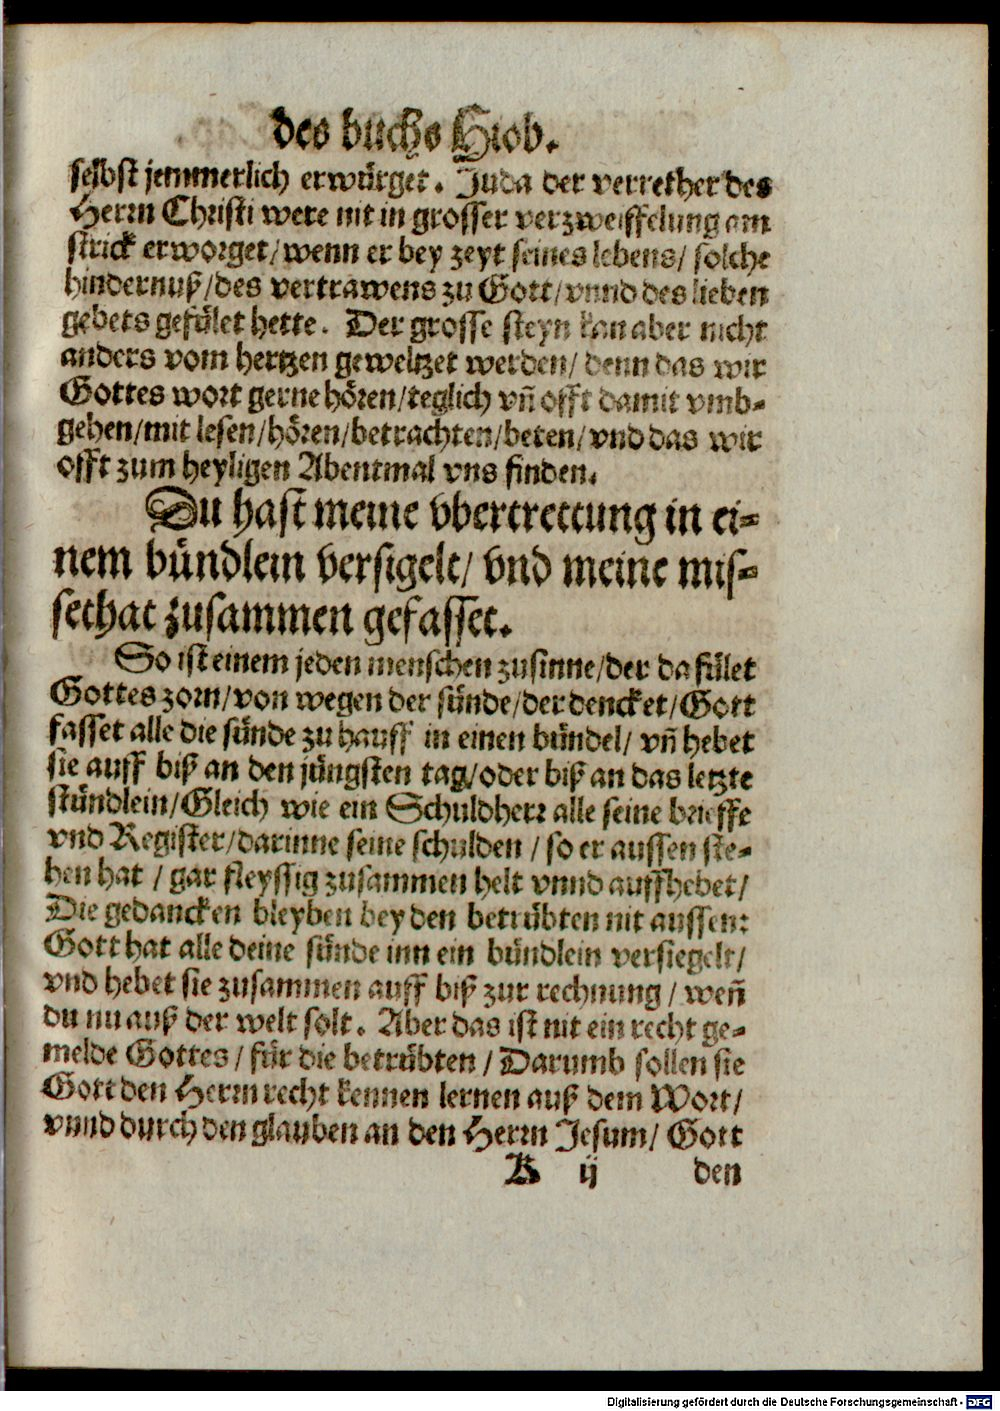 des buchs Hiob.
selbst jemmerlich erwürget. Juda der verrether des
Herrn Christi were nit in grosser verzweiffelung am
strick erworget/ wenn er bey zeyt seines lebens/ solche
hindernuß/ des vertrawens zu Gott/ vnnd des lieben
gebets gefület hette. Der grosse steyn kan aber nicht
anders vom hertzen geweltzet werden/ denn das wir
Gottes wort gerne hören/ teglich vñ offt damit vmb-
gehen/ mit lesen/ hören/ betrachten/ beten/ vnd das wir
offt zum heyligen Abentmal vns finden.
Du hast meine vbertrettung in ei-
nem bündlein versigelt/ vnd meine mis-
sethat zusammen gefasset.
So ist einem jeden menschen zusinne/ der da fület
Gottes zorn/ von wegen der sünde/ der dencket/ Gott
fasset alle die sünde zu hauff in einen bündel/ vñ hebet
sie auff biß an den jüngsten tag/ oder biß an das letzte
stündlein/ Gleich wie ein Schuldherr alle seine brieffe
vnd Register/ darinne seine schulden / so er aussen ste-
hen hat / gar fleyssig zusammen helt vnnd auffhebet/
Die gedancken bleyben bey den betrübten nit aussen:
Gott hat alle deine sünde inn ein bündlein versiegelt/
vnd hebet sie zusammen auff biß zur rechnung / weñ
du nu auß der welt solt. Aber das ist nit ein recht ge-
melde Gottes / für die betrübten / Darumb sollen sie
Gott den Herrn recht kennen lernen auß dem Wort/
vnnd durch den glauben an den Herrn Jesum/ Gott
K ij den
Digitalisierung gefördert durch die Deutsche Forschungsgemeinschaft - DFG